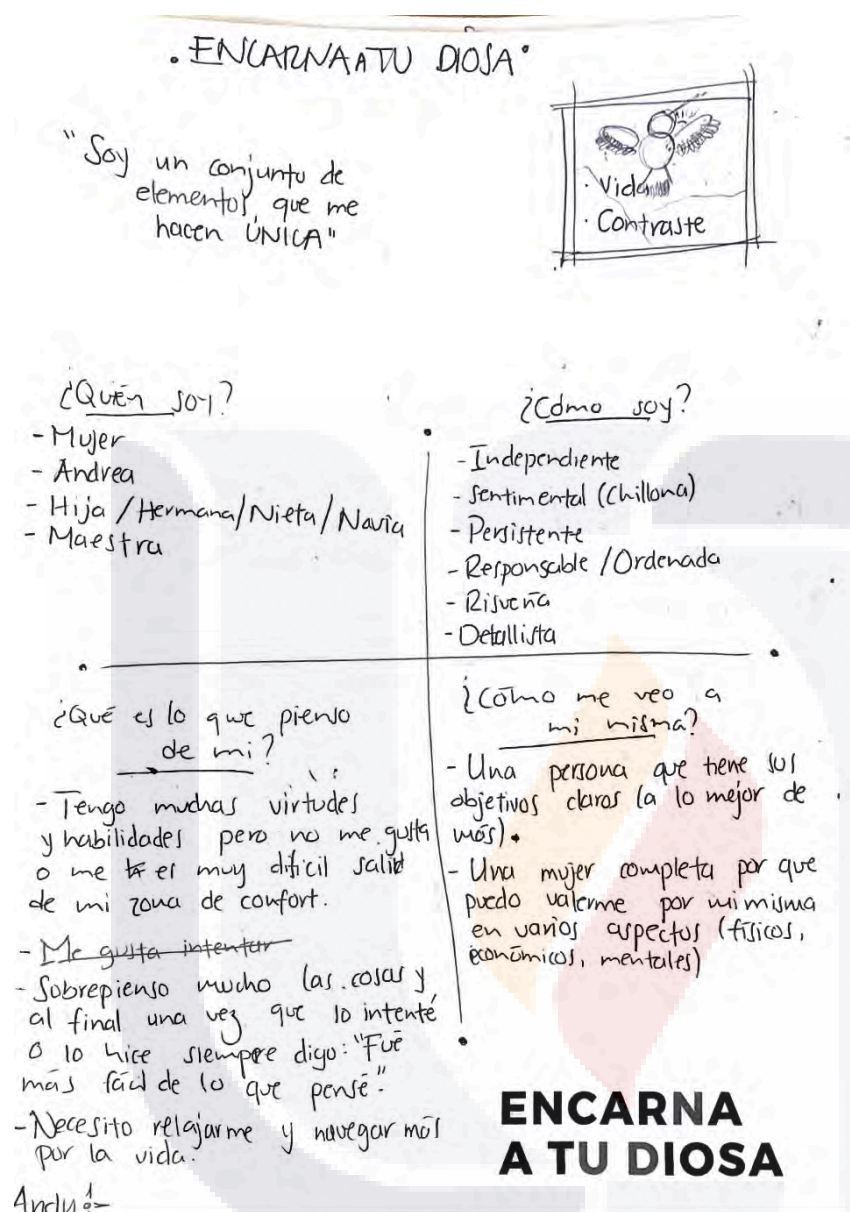 . ENCARNA A TU DIOSA.
"Soy un conjunto de
elementos, que me
hacen ÚNICA"
· Vida
· Contraste
¿Quién soy?
- Mujer
- Andrea
- Hija / Hermana / Nieta / Novia
- Maestra
¿Cómo soy?
- Independiente
- Sentimental (Chillona)
- Persistente
- Responsable / Ordenada
- Risueña
- Detallista
¿Qué es lo que pienso
de mi?
- Tengo muchas virtudes
y habilidades pero no me gusta
o me es muy dificil salir
de mi zona de confort.
- Me gusta intentar
- Sobrepienso mucho las cosas y
al final una vez que lo intenté
o lo hice siempre digo: "Fue
más fácil de lo que pensé".
- Necesito relajarme y navegar más
por la vida.
Andy
¿Cómo me veo a
mi misma?
- Una persona que tiene sus
objetivos claros (a lo mejor de
más).
- Una mujer completa por que
puedo valerme por mi misma
en varios aspectos (físicos,
económicos, mentales)
ENCARNA
A TU DIOSA